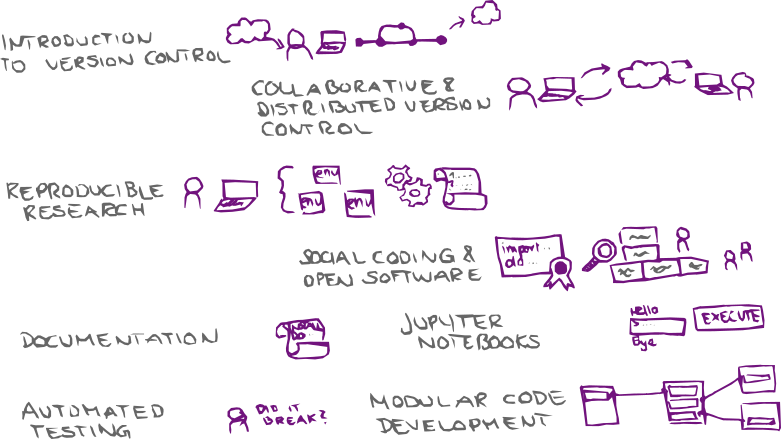 INTRODUCTION
TO VERSION CONTROL
COLLABORATIVE &
DISTRIBUTED VERSION
CONTROL
REPRODUCIBLE
RESEARCH
env
env
env
SOCIAL CODING &
OPEN SOFTWARE
import...
old...
DOCUMENTATION
JUPYTER
NOTEBOOKS
Hello
>...
Bye
EXECUTE
AUTOMATED
TESTING
DID IT
BREAK?
MODULAR CODE
DEVELOPMENT